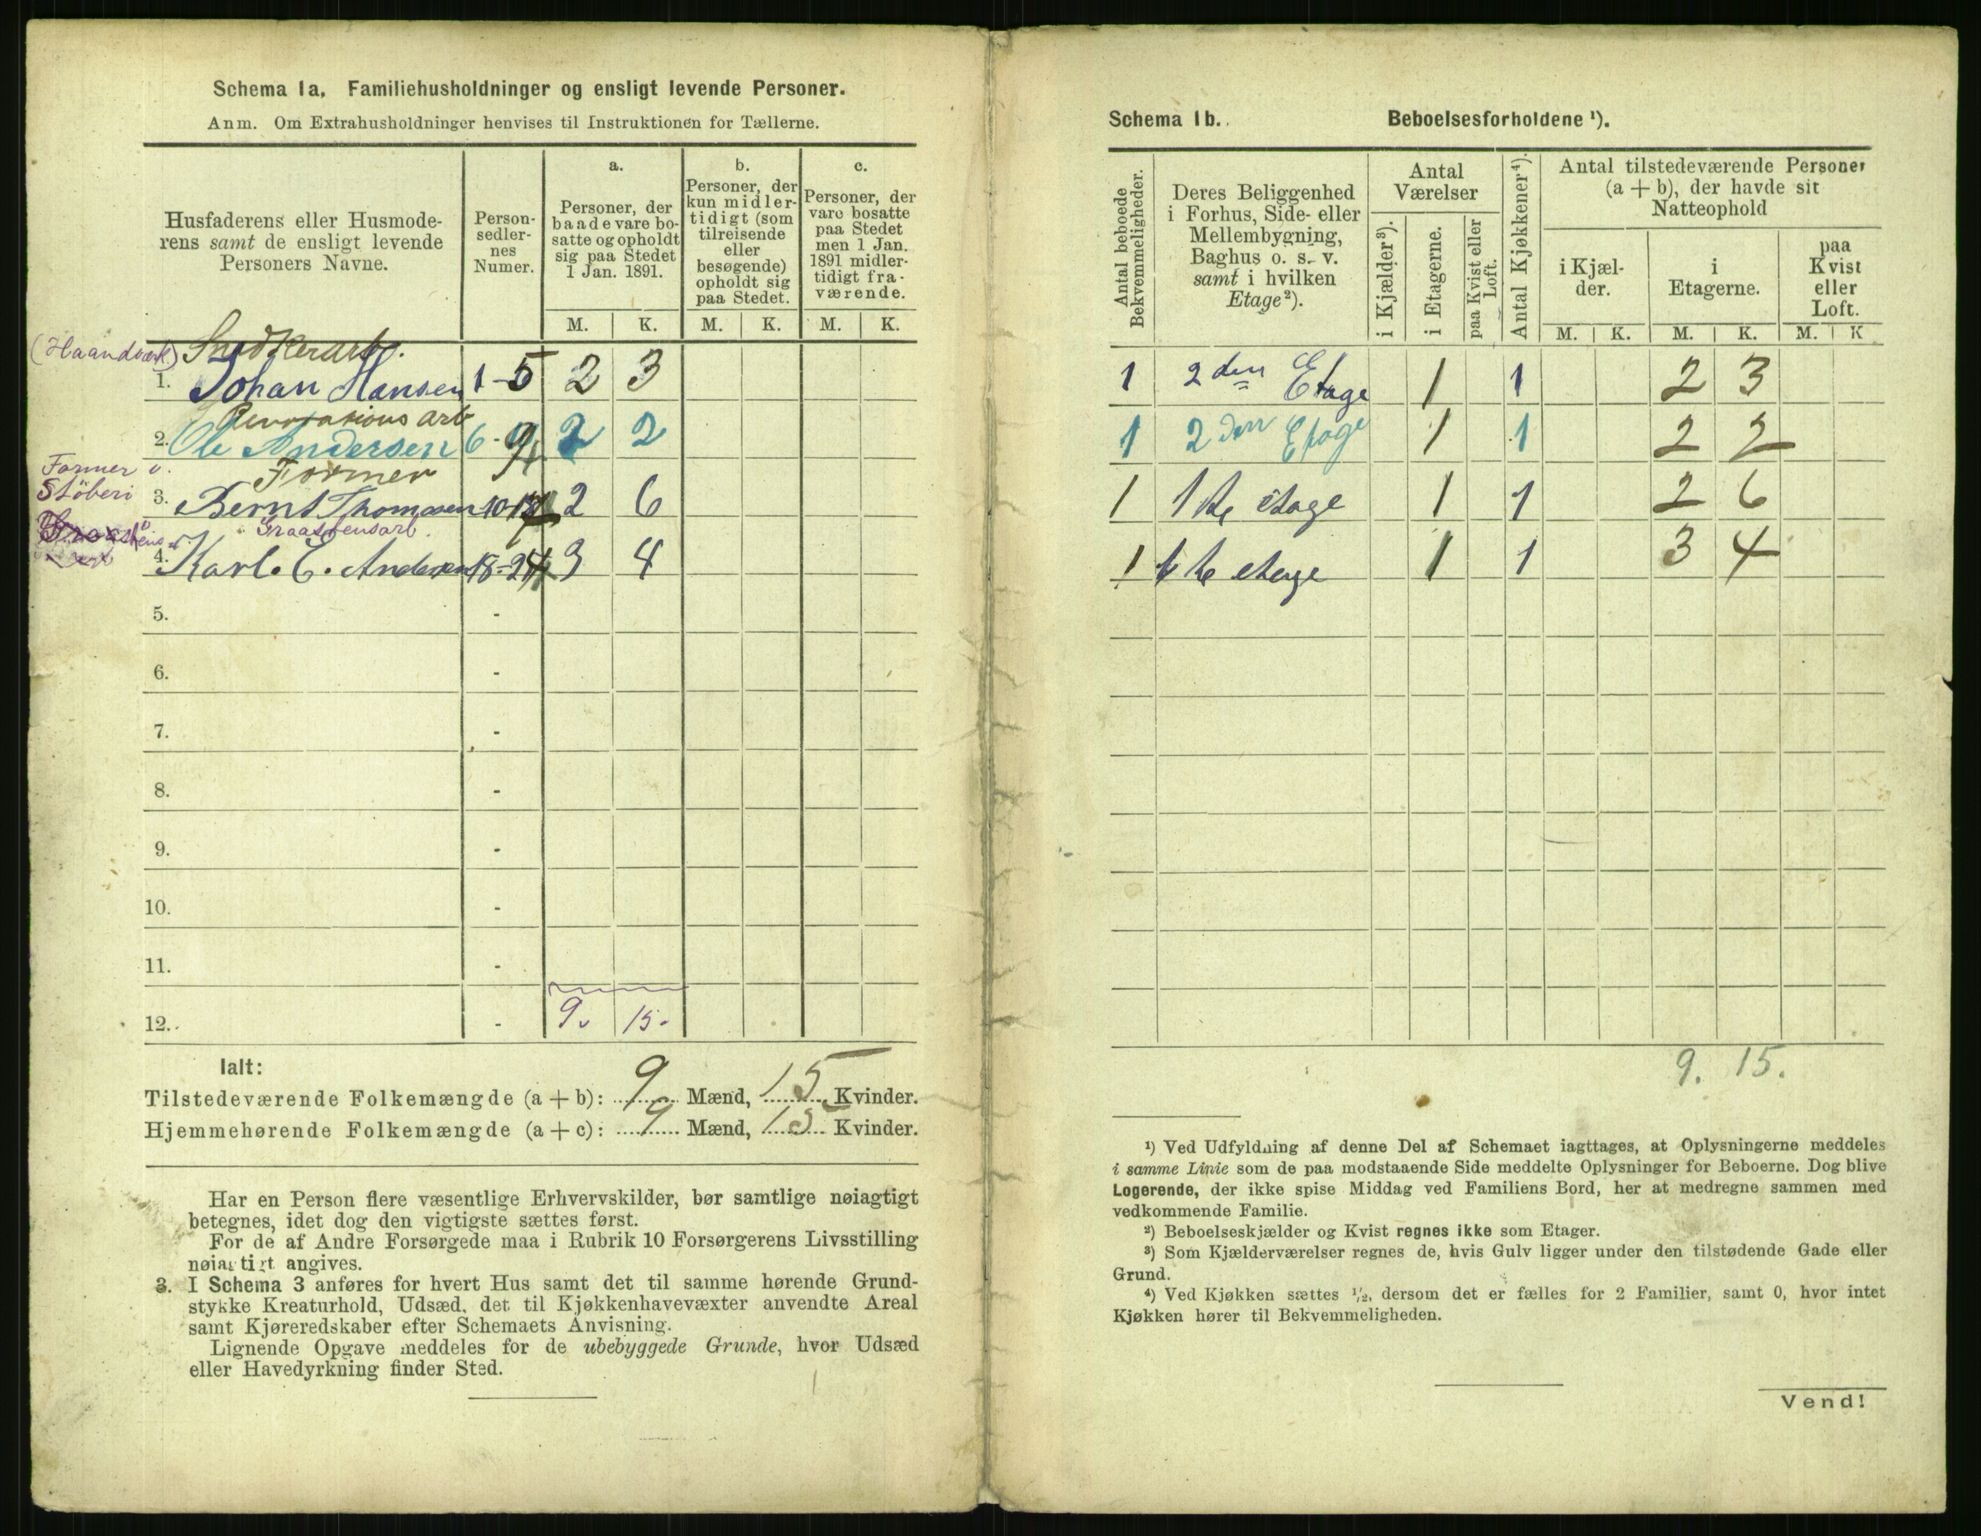 Schema 1a. Familiehusholdninger og ensligt levende Personer.
Anm. Om Extrahusholdninger henvises til Instruktionen for Tællerne.
Husfaderens eller Husmoderens samt de ensligt levende Personers Navne.
Personsedlernes Numer.
a.
Personer, der baade vare bosatte og opholdt sig paa Stedet 1 Jan. 1891.
b.
Personer, der kun midlertidigt (som tilreisende eller besøgende) opholdt sig paa Stedet.
c.
Personer, der vare bosatte paa Stedet men 1 Jan. 1891 midlertidigt fraværende.
M. K. M. K. M. K.
(Haandværk) Snedkerarb.
1. Johan Hansen 1-5 2 3
2. Ole Andersen 6-9 2 2
Former
Former
Støberi
3. Bernt Thomsen 10-17 2 6
Graastensarb.
4. Karl. E. Andersen 18-24 3 4
5. -
6. -
7. -
8. -
9. -
10. -
11. -
12. - 9. 15.
Ialt:
Tilstedeværende Folkemængde (a + b): 9 Mænd, 15 Kvinder.
Hjemmehørende Folkemængde (a + c): 9 Mænd, 15 Kvinder.
Har en Person flere væsentlige Erhvervskilder, bør samtlige nøiagtigt
betegnes, idet dog den vigtigste sættes først.
For de af Andre Forsørgede maa i Rubrik 10 Forsørgerens Livsstilling
nøiagtigt angives.
3. I Schema 3 anføres for hvert Hus samt det til samme hørende Grund-
stykke Kreaturhold, Udsæd, det til Kjøkkenhavevæxter anvendte Areal
samt Kjøreredskaber efter Schemaets Anvisning.
Lignende Opgave meddeles for de ubebyggede Grunde, hvor Udsæd
eller Havedyrkning finder Sted.
Schema 1b. Beboelsesforholdene ¹).
Antal beboede Bekvemmeligheder.
Deres Beliggenhed i Forhus, Side- eller Mellembygning, Baghus o. s. v. samt i hvilken Etage ²).
Antal Værelser
i Kjælder ³).
i Etagerne.
paa Kvist eller Loft.
Antal Kjøkkener ⁴).
Antal tilstedeværende Personer (a + b), der havde sit Natteophold
i Kjælder.
i Etagerne.
paa Kvist eller Loft.
M. K. M. K. M. K
1 2den Etage 1 1 2 3
1 2den Etage 1 1 2 2
1 1ste etage 1 1 2 6
1 1ste etage 1 1 3 4
9. 15.
¹) Ved Udfyldning af denne Del af Schemaet iagttages, at Oplysningerne meddeles
i samme Linie som de paa modstaaende Side meddelte Oplysninger for Beboerne. Dog blive
Logerende, der ikke spise Middag ved Familiens Bord, her at medregne sammen med
vedkommende Familie.
²) Beboelseskjælder og Kvist regnes ikke som Etager.
³) Som Kjælderværelser regnes de, hvis Gulv ligger under den tilstødende Gade eller
Grund.
⁴) Ved Kjøkken sættes ½, dersom det er fælles for 2 Familier, samt 0, hvor intet
Kjøkken hører til Bekvemmeligheden.
Vend!